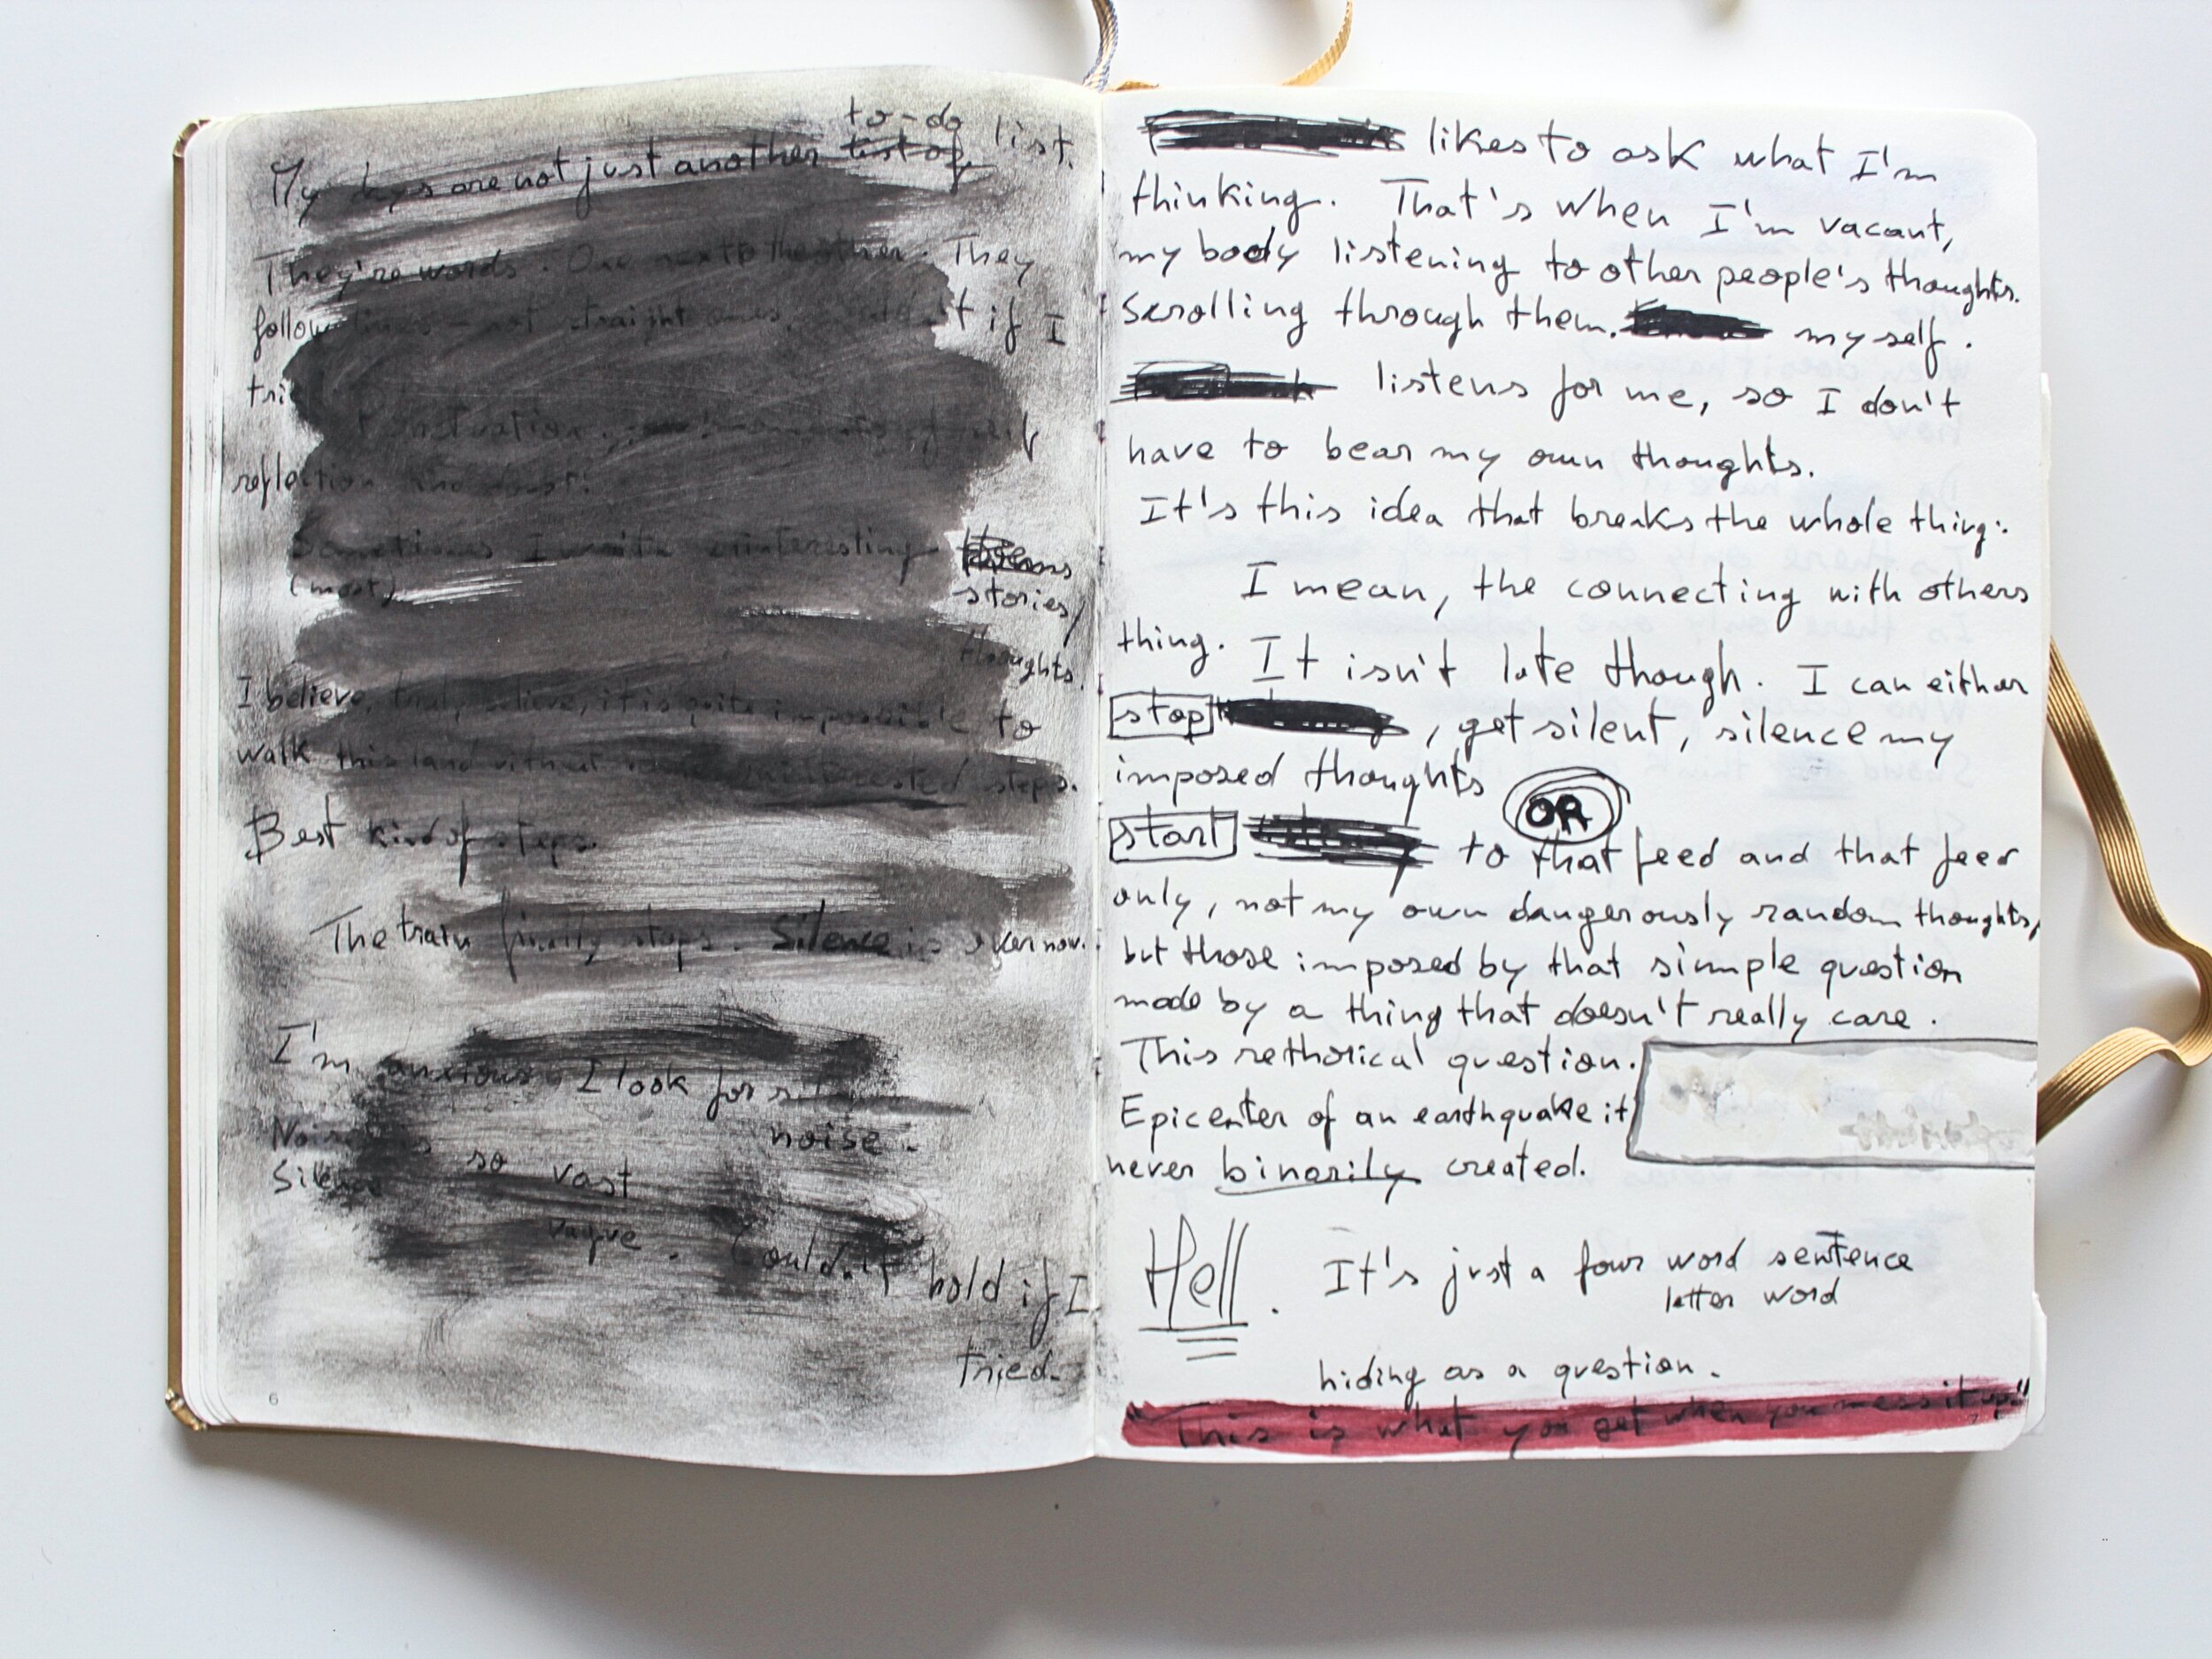 to-do list.
My days are not just another list of
They're words. One next to the other. They
follow lines - not straight ones, if I
tri
Punctuation. moments of self
reflection and
Sometimes I write uninteresting
(most) stories/
thoughts.
I believe, truly believe, it is quite impossible to
walk this land without some uninterested steps.
Best kind of steps.
The train finally stops. Silence is over now.
I'm anxious. I look for
noise.
so vast
Silence
vague. Couldn't hold if I
tried.
6
likes to ask what I'm
thinking. That's when I'm vacant,
my body listening to other people's thoughts.
Scrolling through them. myself.
listens for me, so I don't
have to bear my own thoughts.
It's this idea that breaks the whole thing:
I mean, the connecting with others
thing. It isn't late though. I can either
stop , get silent, silence my
imposed thoughts
OR
start to that feed and that feed
only, not my own dangerously random thoughts,
but those imposed by that simple question
made by a thing that doesn't really care.
This rethorical question.
Epicenter of an earthquake it
never binarily created.
Hell. It's just a four word sentence
letter word
hiding as a question.
"This is what you get when you mess it up."